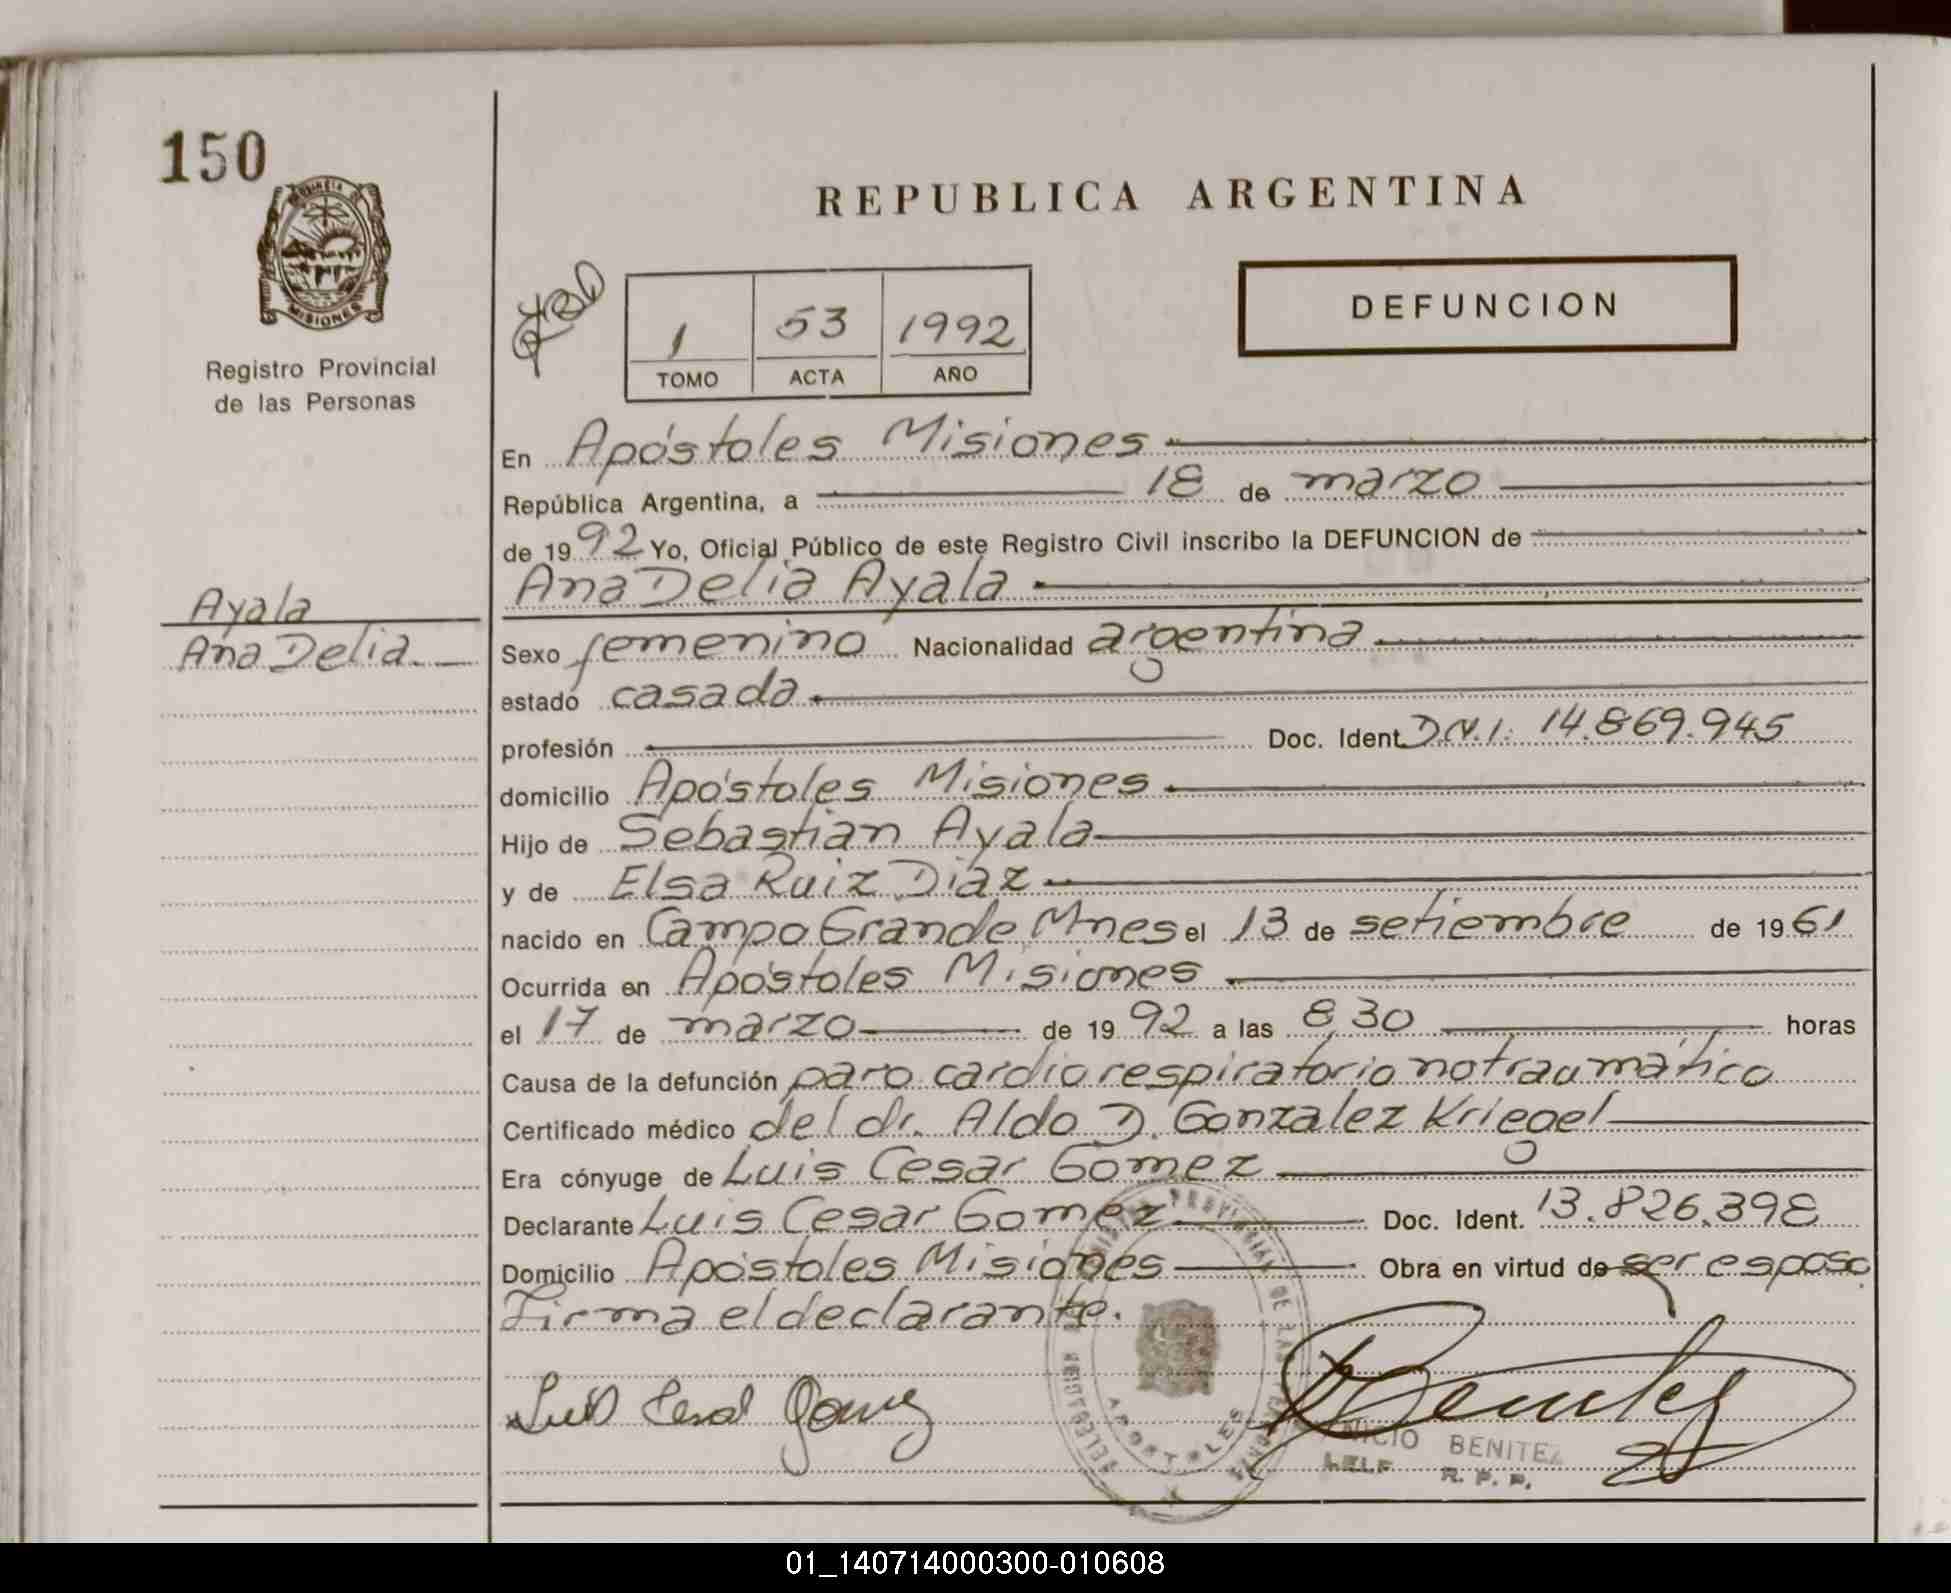 150
PROVINCIA DE
MISIONES
Registro Provincial
de las Personas
REPUBLICA ARGENTINA
1 53 1992
TOMO ACTA AÑO
DEFUNCION
En Apóstoles Misiones
República Argentina, a 18 de marzo
de 1992 Yo, Oficial Público de este Registro Civil inscribo la DEFUNCION de
Ana Delia Ayala
Ayala
Ana Delia
Sexo femenino Nacionalidad argentina
estado casada
profesión Doc. Ident. D.N.I. 14.869.945
domicilio Apóstoles Misiones
Hijo de Sebastian Ayala
y de Elsa Ruiz Diaz
nacido en Campo Grande Mnes el 13 de setiembre de 1961
Ocurrida en Apóstoles Misiones
el 17 de marzo de 1992 a las 8,30 horas
Causa de la defunción paro cardiorespiratorio no traumático
Certificado médico del dr. Aldo D. Gonzalez Kriegel
Era cónyuge de Luis Cesar Gomez
Declarante Luis Cesar Gomez Doc. Ident. 13.826.398
Domicilio Apóstoles Misiones Obra en virtud de ser esposo
Firma el declarante.
Luis Cesar Gomez
Benitez
NICIO BENITEZ
R. P. P.
REGISTRO PROVINCIAL DE LAS PERSONAS
APOSTOLES
01_140714000300-010608